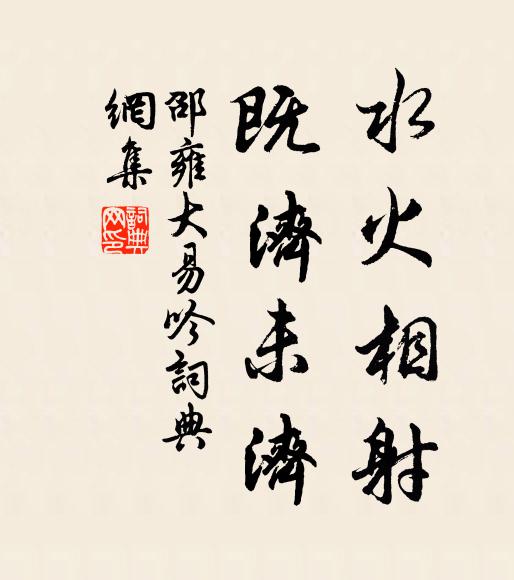 水火相射
既濟未濟
邵雍大易吟詞典
網集
詞典網印